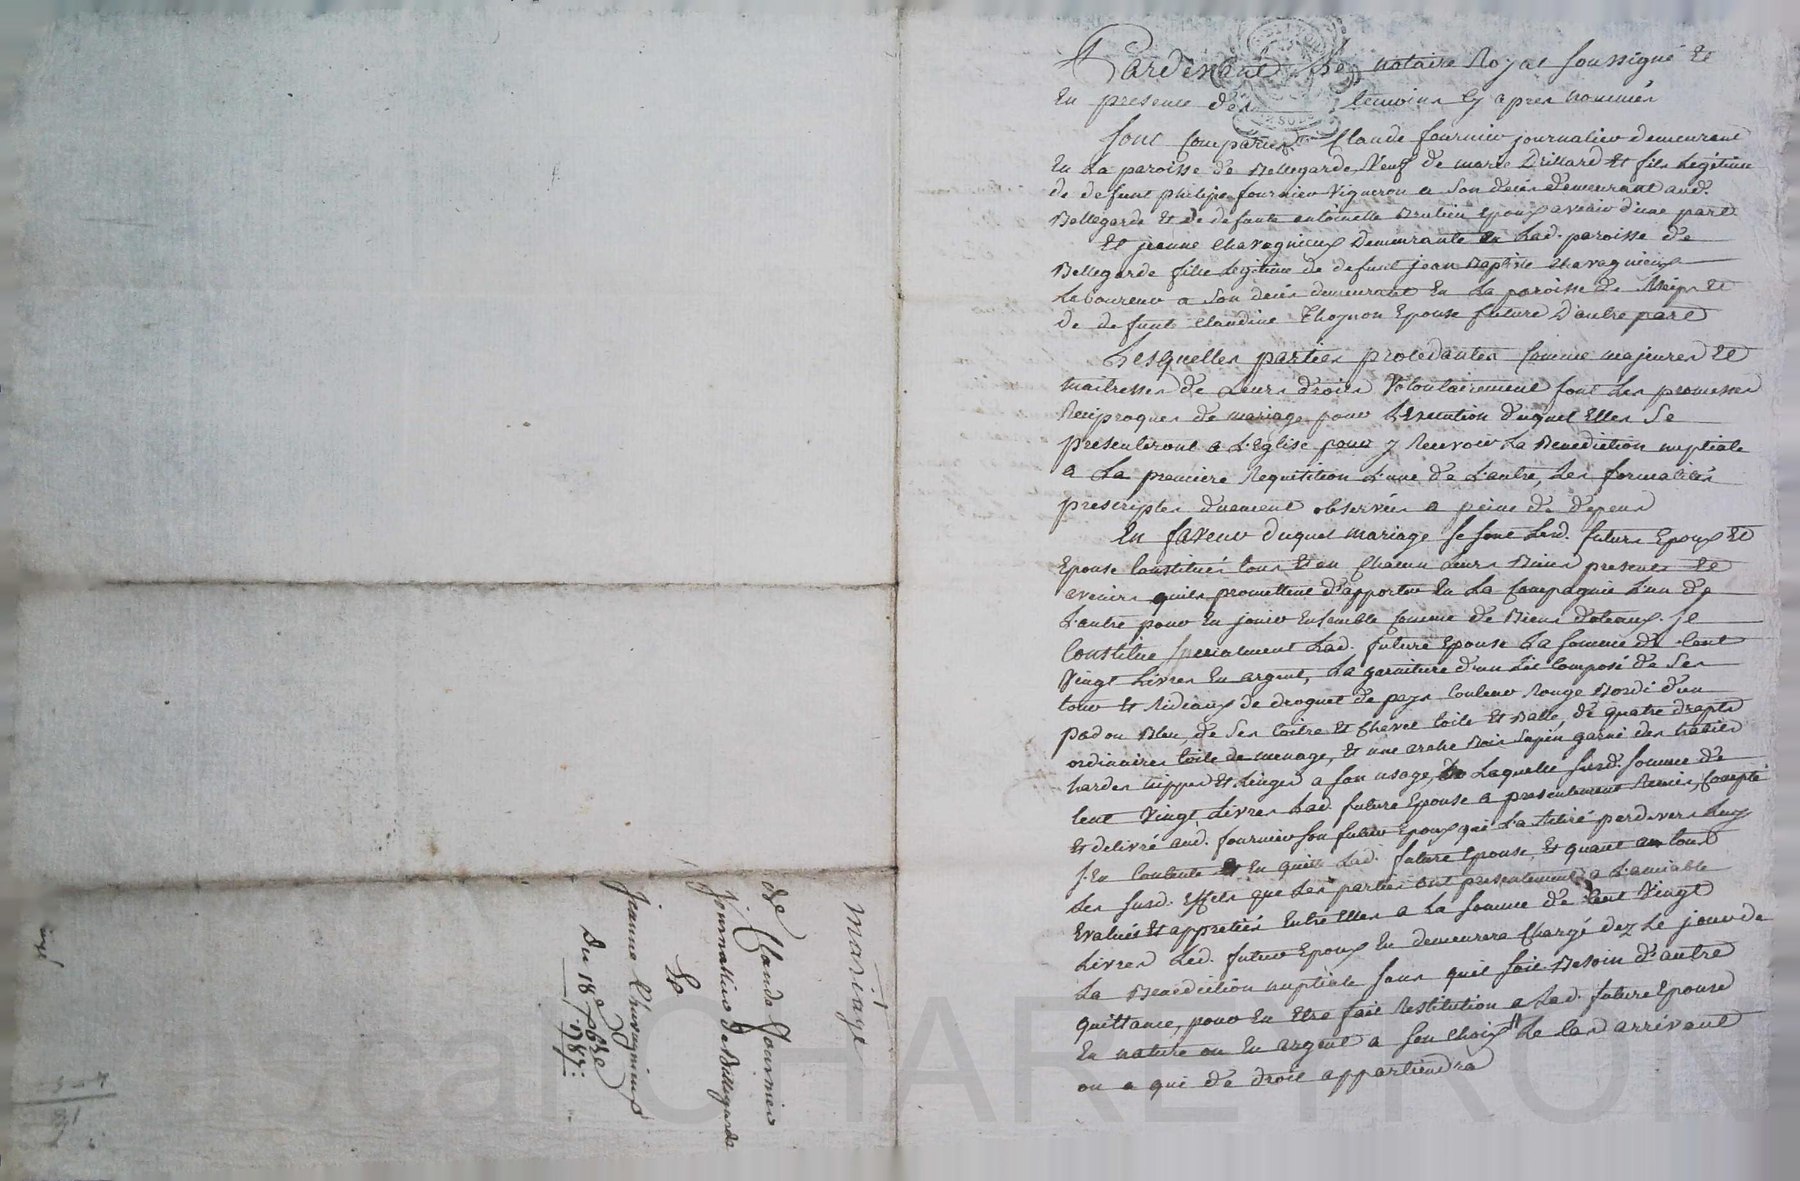 Pardevant le notaire Royal soussigné et
En presence des temoins cy apres nommés
sont comparus Claude fournier journalier demeurant
En La paroisse de Bellegarde Veuf de marie Drillard et fils Legitime
de defunt philipe fournier Vigneron a son deces demeurant aud.
Bellegarde et de defunte antoinette Epoux avenir d'une part
Et jeanne Chavagnieux demeurante en Lad. paroisse de
Bellegarde fille Legitime de defunt jean Baptiste Chavagnieux
Laboureur a son deces demeurant En La paroisse de et
de defunte Claudine Thognon Epouse future d'autre part
Lesquelles parties procedantes comme majeures et
maitresses de Leurs droits Volontairement font Les promesses
Reciproques de mariage pour L'Execution duquel Elles se
presenteront a L'Eglise pour y Recevoir La Benediction nuptiale
a La premiere Requisition L'une de L'autre, Les formalités
prescriptes duement observées a peine de depens
En faveur duquel mariage se sont Lesd. futurs Epoux et
Epouse Constitués tous et un chacun Leurs Biens presents et
avenirs quils promettent d'apporter En La Compagnie L'un de
L'autre pour En jouir Ensemble comme de Biens doteaux. se
Constitue specialement Lad. future Epouse La somme de Cent
Vingt Livres En argent, La garniture d'un Lit Composé de ses
tour et Rideaux de droguet de pays Couleur Rouge Bordé d'un
padou Bleu, de ses Coitre et chevet toile et Balle, de quatre draps
ordinaires toile de menage, et une arche Bois sapin garnie des habits
hardes nippes et Linges a son usage, Laquelle susd. somme de
Cent Vingt Livres Lad. future Epouse a presentement Remis, compté
Et delivré aud. fournier son futur Epoux qui L'a Retiré pardevers Luy
s'En Contente et En quitte Lad. future Epouse, Et quant au tous
Les susd. Effets que Les parties ont presentement a L'amiable
Evalués et appretiés Entre Elles a La somme de Cent Vingt
Livres Led. futur Epoux En demeurera Chargé dez Le jour de
La Benediction nuptiale sans quil soit Besoin d'autre
quittance, pour En Etre fait Restitution a Lad. future Epouse
En nature ou En argent a son Choix Le Cas arrivant
ou a qui de droit appartiendra
Mariage
de Claude Fournier
Journallier de Bellegarde
Et
Jeanne Chavagnieux
Du 18e 7bre
1787.
CHAREYRON